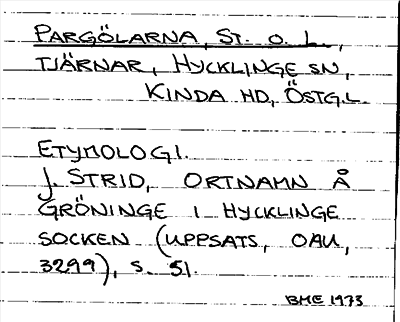 PARGÖLARNA, ST. O. L.,
TJÄRNAR, HYCKLINGE SN,
KINDA HD, ÖSTG.L.
ETYMOLOGI.
J. STRID, ORTNAMN Å
GRÖNINGE I HYCKLINGE
SOCKEN (UPPSATS, OAU,
3299), S. 51.
BME 1973